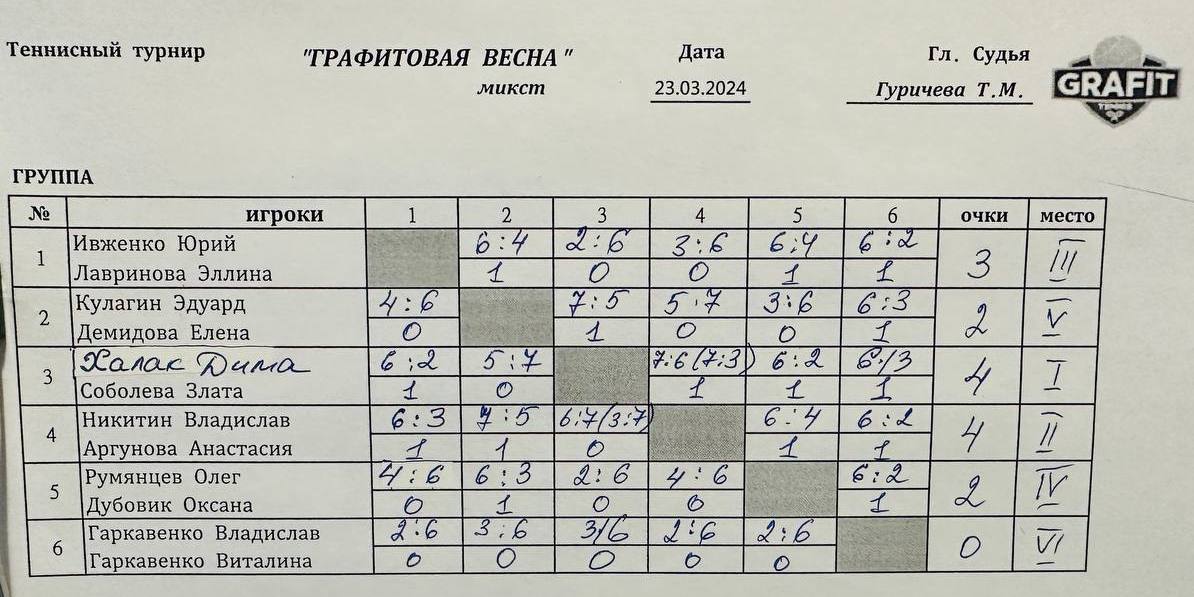 Теннисный турнир "ГРАФИТОВАЯ ВЕСНА" Дата Гл. Судья
микст 23.03.2024 Гуричева Т.М.
GRAFIT
TENNIS
ГРУППА
№ игроки 1 2 3 4 5 6 очки место
1 Ивженко Юрий 6:4 2:6 3:6 6:4 6:2 3 III
Лавринова Эллина 1 0 0 1 1
2 Кулагин Эдуард 4:6 7:5 5:7 3:6 6:3 2 V
Демидова Елена 0 1 0 0 1
3 Халак Дима 6:2 5:7 7:6(7:3) 6:2 6:3 4 I
Соболева Злата 1 0 1 1 1
4 Никитин Владислав 6:3 7:5 6:7(3:7) 6:4 6:2 4 II
Аргунова Анастасия 1 1 0 1 1
5 Румянцев Олег 4:6 6:3 2:6 4:6 6:2 2 IV
Дубовик Оксана 0 1 0 0 1
6 Гаркавенко Владислав 2:6 3:6 3/6 2:6 2:6 0 VI
Гаркавенко Виталина 0 0 0 0 0